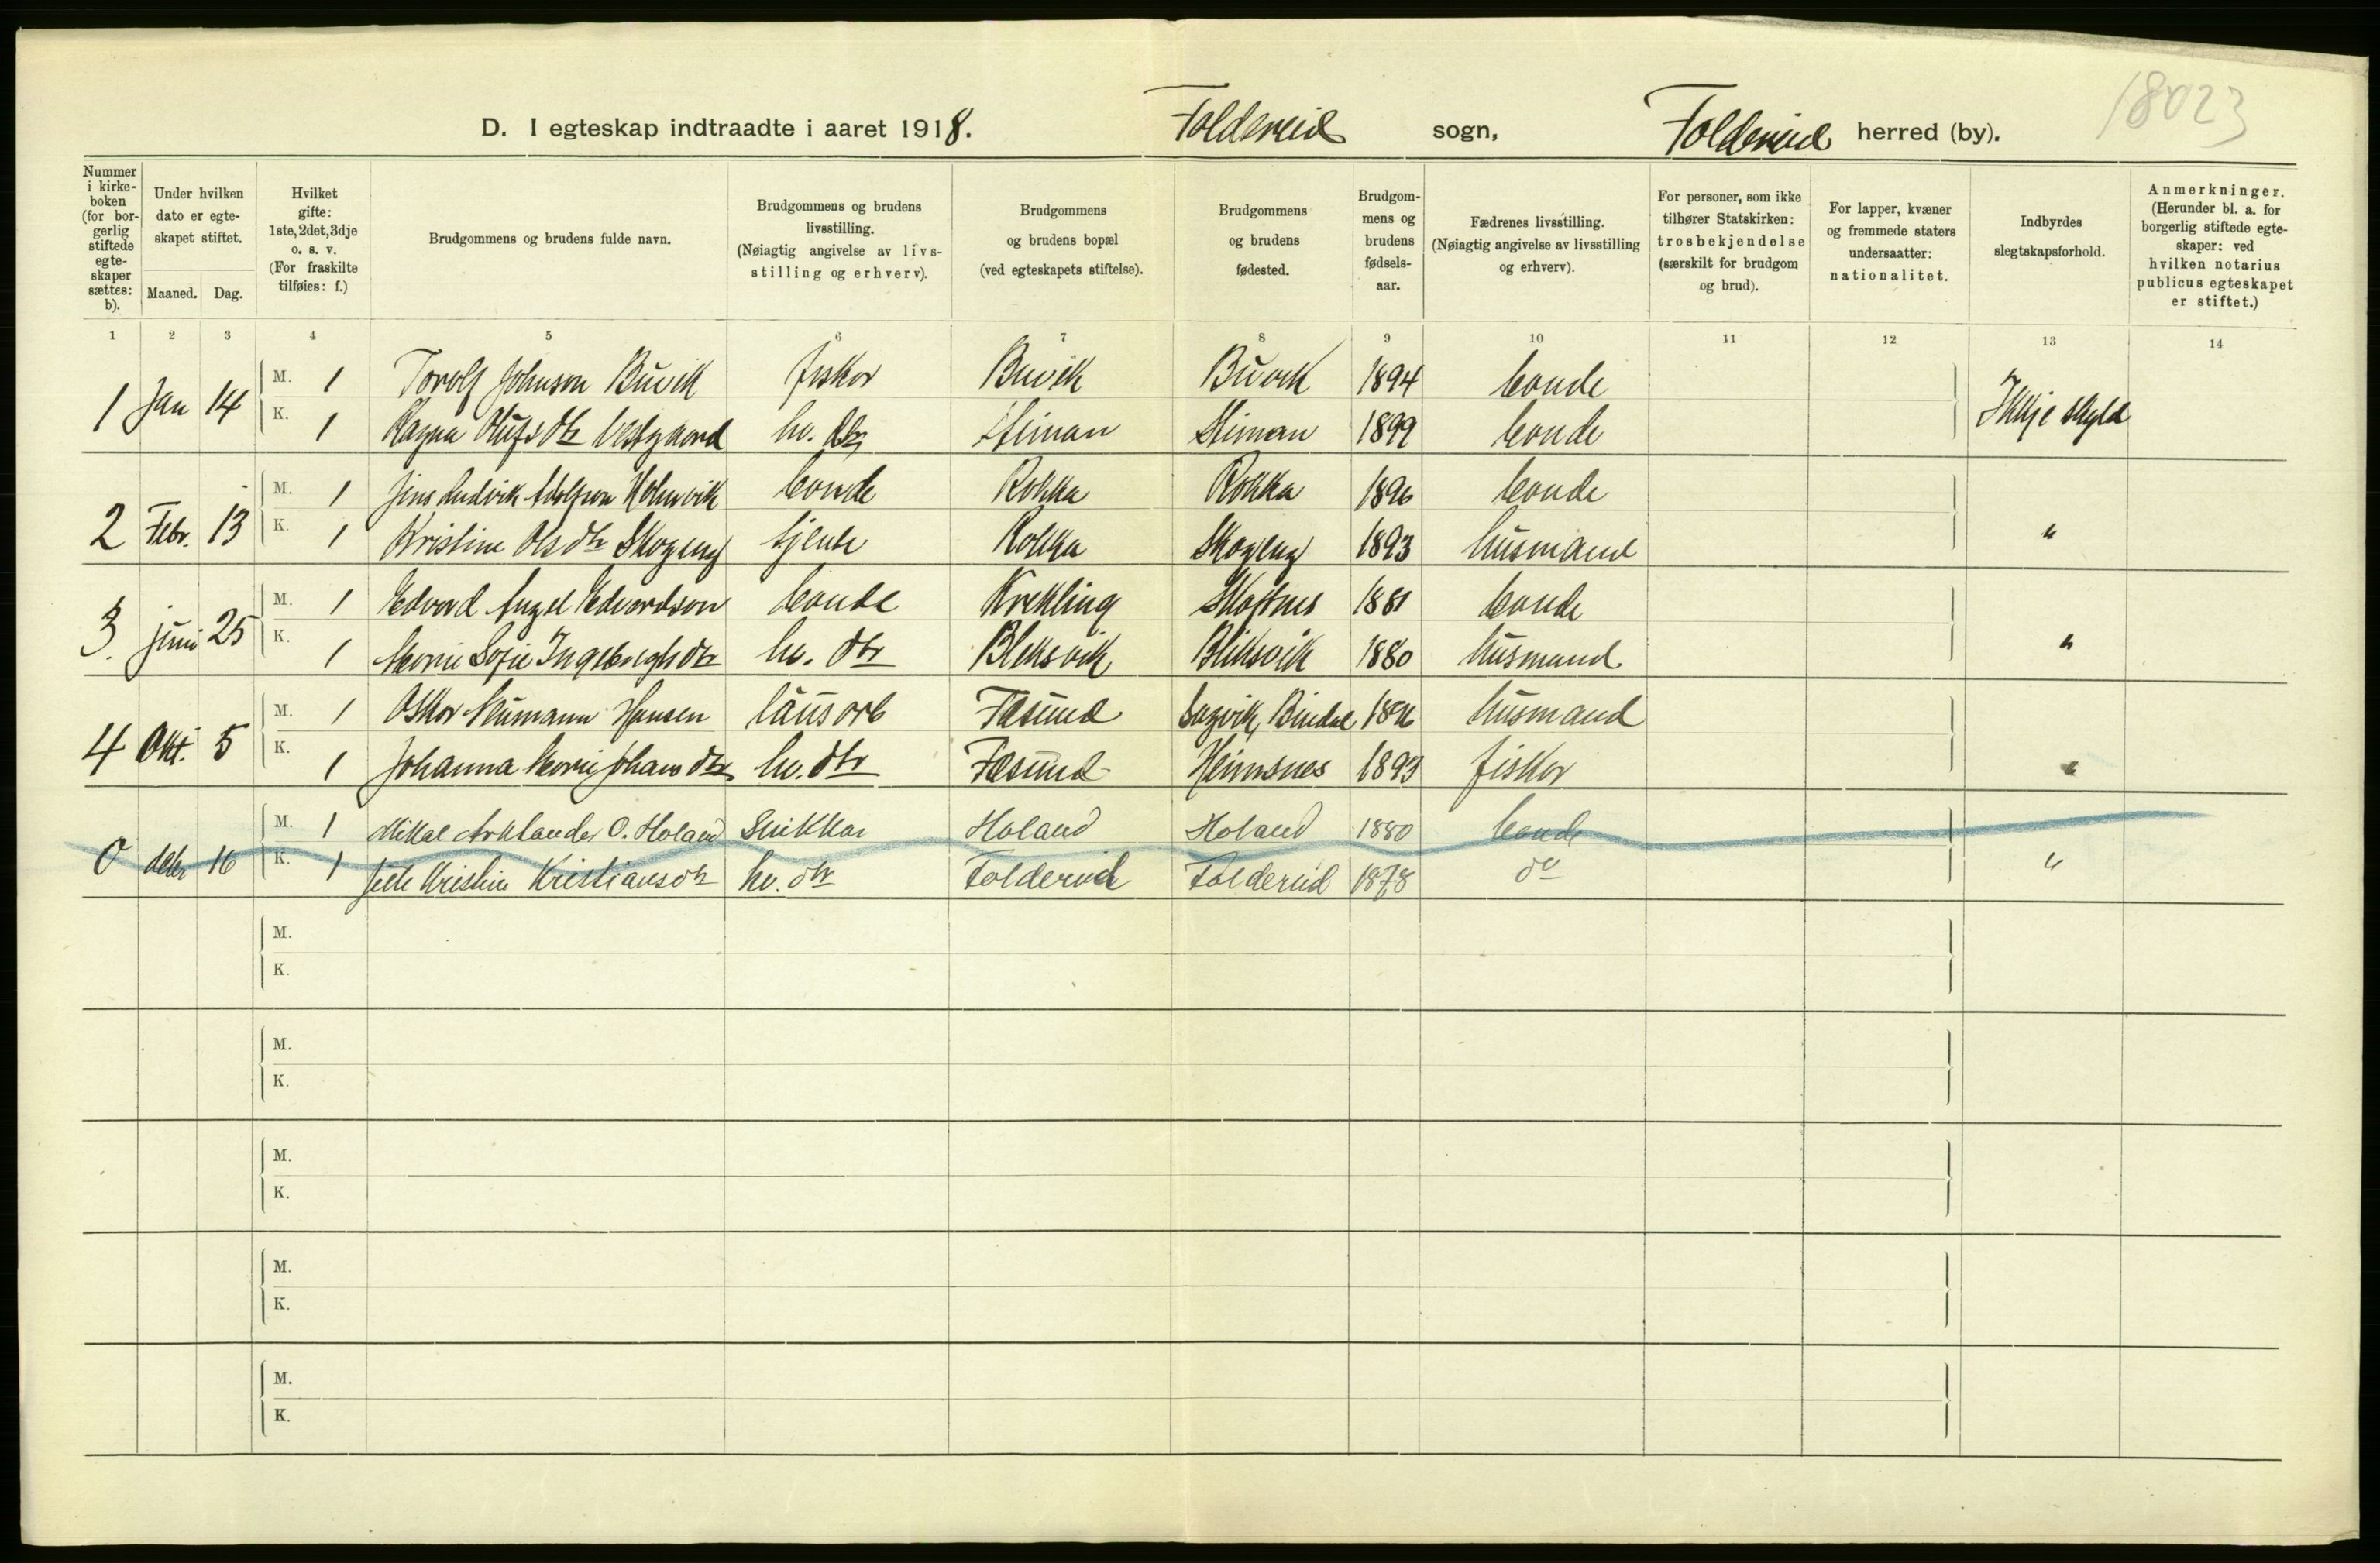 18023
D. I egteskap indtraadte i aaret 1918. Foldereid sogn, Foldereid herred (by).
Nummer i kirke-boken (for bor-gerlig stiftede egte-skaper sættes: b).
Under hvilken dato er egte-skapet stiftet.
Maaned. Dag.
Hvilket gifte: 1ste, 2det, 3dje o. s. v. (For fraskilte tilføies: f.)
Brudgommens og brudens fulde navn.
Brudgommens og brudens livsstilling. (Nøiagtig angivelse av livs-stilling og erhverv).
Brudgommens og brudens bopæl (ved egteskapets stiftelse).
Brudgommens og brudens fødested.
Brudgom-mens og brudens fødsels-aar.
Fædrenes livsstilling. (Nøiagtig angivelse av livsstilling og erhverv).
For personer, som ikke tilhører Statskirken: trosbekjendelse (særskilt for brudgom og brud).
For lapper, kvæner og fremmede staters undersaatter: nationalitet.
Indbyrdes slegtskapsforhold.
Anmerkninger. (Herunder bl. a. for borgerlig stiftede egte-skaper: ved hvilken notarius publicus egteskapet er stiftet.)
1 2 3 4 5 6 7 8 9 10 11 12 13 14
1 Jan 14 M. 1 Torolf Johnson Buvik fiskar Buvik Buvik 1894 bonde Ikkje skyld
K. 1 Ragna Olufsdtr Vestgaard hv. dtr Steinan Steinan 1899 bonde
2 Febr. 13 M. 1 Jens Ludvik Adolfson Holmvik bonde Rokka Rokka 1896 bonde "
K. 1 Kristine Olsdtr Skogeng tjente Rokka Skogeng 1893 husmand
3. juni 25 M. 1 Edvard Angel Edvardson bonde Krekling Skotnes 1881 bonde "
K. 1 Marie Sofie Ingebrigtsdtr hv. dtr Bleksvik Bleksvik 1880 husmand
4 Okt. 5 M. 1 Oskar Neumann Hansen lausarb Fæsund Sagvik, Bindal 1896 husmand "
K. 1 Johanna Marie Johansdtr hv. dtr Fæsund Heimsnes 1893 fiskar
0 decbr 16 M. 1 Mikal Arklander O. Holand Snikkar Holand Holand 1880 bonde "
K. 1 Kristine Kristiansdtr hv. dtr Foldereid Foldereid 1878 do
M.
K.
M.
K.
M.
K.
M.
K.
M.
K.